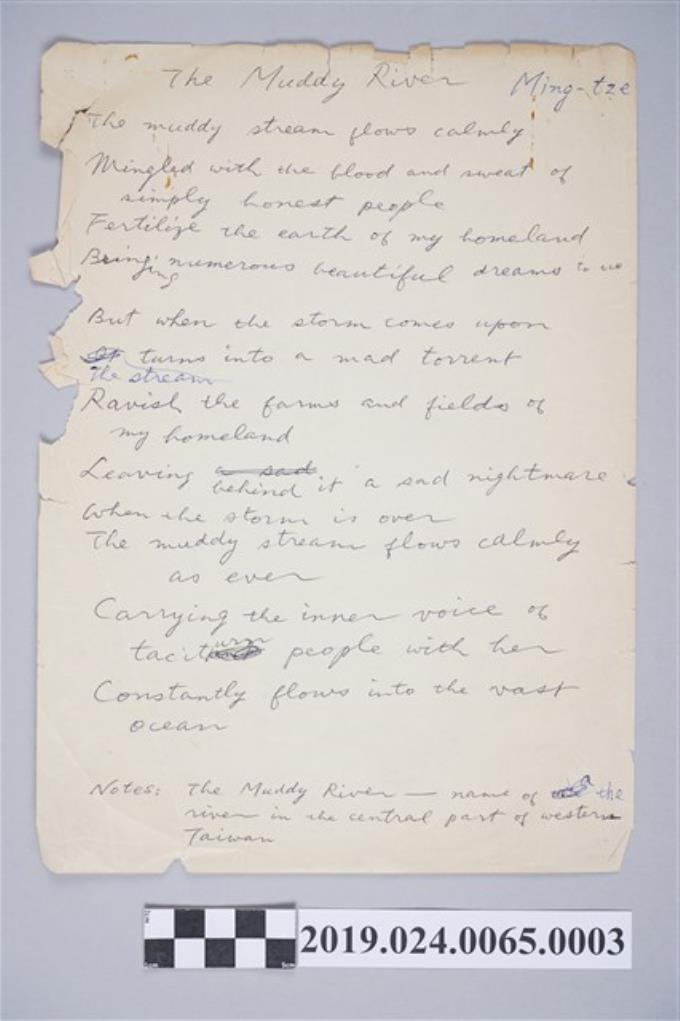 The Muddy River Ming-tze
The muddy stream flows calmly
Mingled with the blood and sweat of
simply honest people
Fertilize the earth of my homeland
Bringing numerous beautiful dreams to us
But when the storm comes upon
It turns into a mad torrent
The stream
Ravish the farms and fields of
my homeland
Leaving a sad behind it a sad nightmare
When the storm is over
The muddy stream flows calmly
as ever
Carrying the inner voice of
taciturn people with her
Constantly flows into the vast
ocean
Notes: The Muddy River — name of the
river in the central part of western
Taiwan
2019.024.0065.0003
5cm